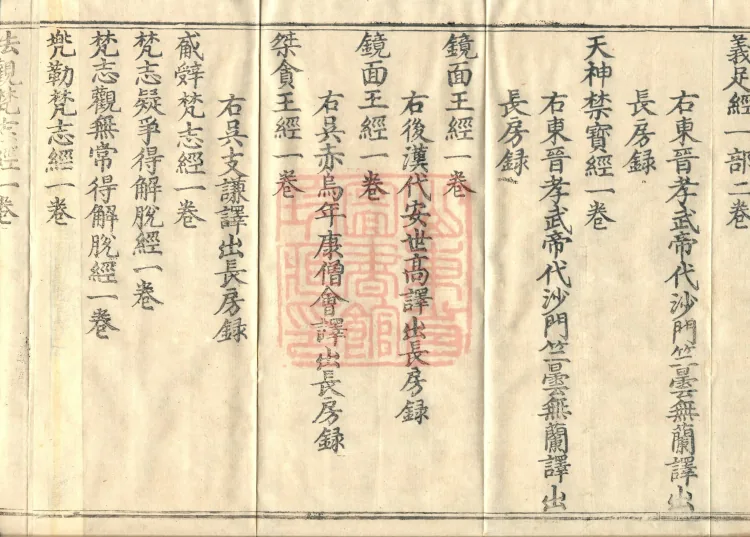 義足經一部二卷
右東晉孝武帝代沙門竺曇無蘭譯出
長房録
天神禁寶經一卷
右東晉孝武帝代沙門竺曇無蘭譯出
長房録
鏡面王經一卷
右後漢代安世高譯出長房録
鏡面王經一卷
右吳赤烏年康僧會譯出長房録
桀貪王經一卷
右吳支謙譯出長房録
梵志經一卷
梵志疑爭得解脫經一卷
梵志觀無常得解脫經一卷
兠勒梵志經一卷
法觀梵志經一卷